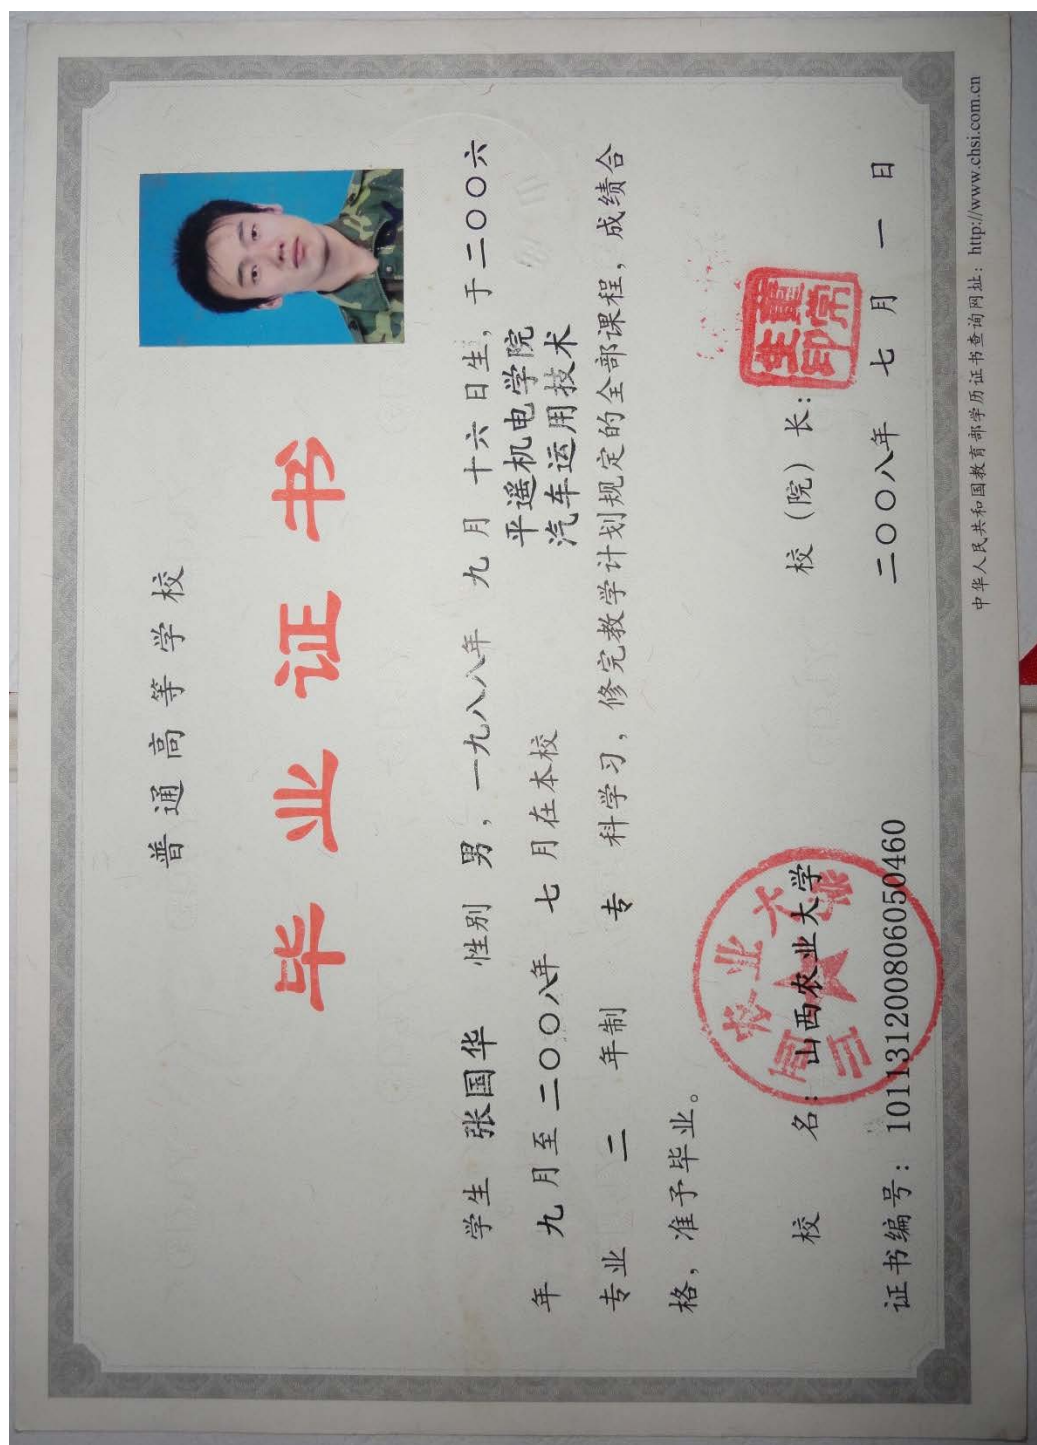 普通高等学校
毕业证书
学生 张国华 性别 男，一九八八年 九月 十六日生，于二〇〇六
年 九月至二〇〇八年 七月在本校 平遥机电学院
汽车运用技术
专业 二 年制 专 科学习，修完教学计划规定的全部课程，成绩合
格，准予毕业。
校 名：山西农业大学
校（院）长：
董常生印
证书编号：101131200806050460
二〇〇八年 七月 一日
中华人民共和国教育部学历证书查询网址：http://www.chsi.com.cn